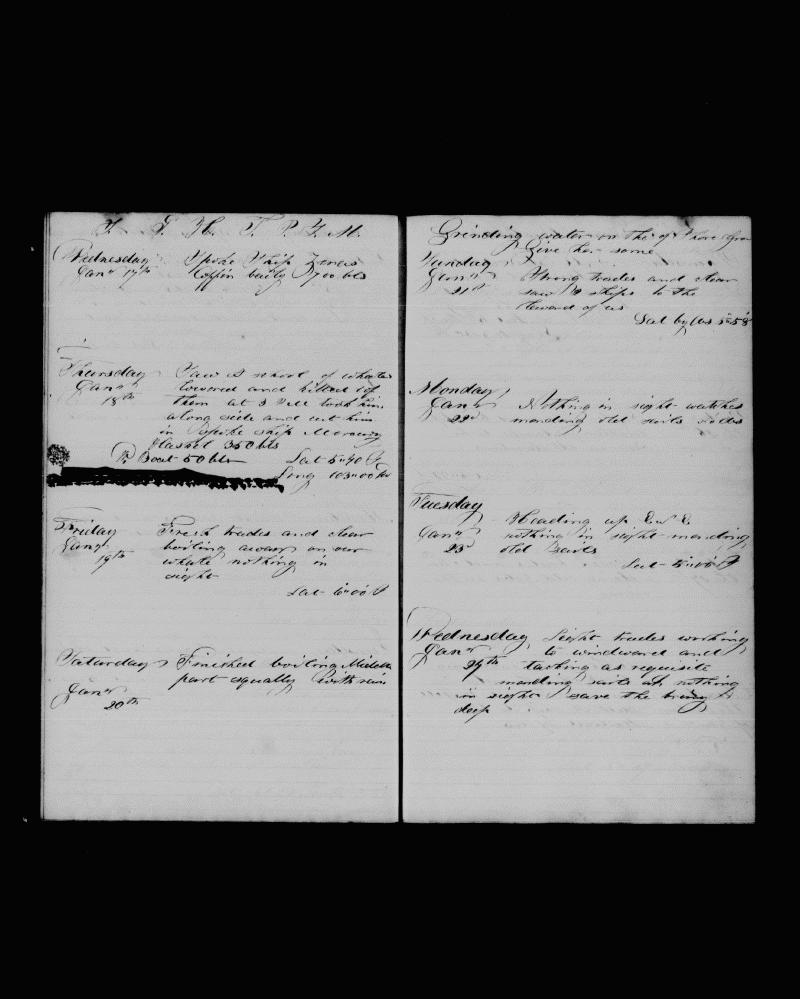 Wednesday Spoke Ship
Jany 17th Coffin baily 700 bls
Thursday Saw a school of whales
Jany lowered and killed 1 of
18th them at 3 PM took him
along side and cut him
in Spoke ship Mercury
Haskel 350 bls
Boat 50 bls Lat 5"40
Long 103"00
Friday Fresh trades and clear
Jany boiling away on our
19th whale nothing in
sight
Lat 6"00
Saturday Finished boiling Middle
part squally with rain
Jany
20th
water on the
Give her some
Sunday
Jany Strong trades and clear
21st saw 2 ships to the
leward of us
Lat by obs 5"58
Monday
Jany Nothing in sight watches
22d mending old sails
Tuesday
Heading up E N E
Jany nothing in sight mending
23d old sails
Lat
Wednesday Light trades working
Jany to windward and
24th tacking as requisite
mending sails nothing
in sight save the
deep